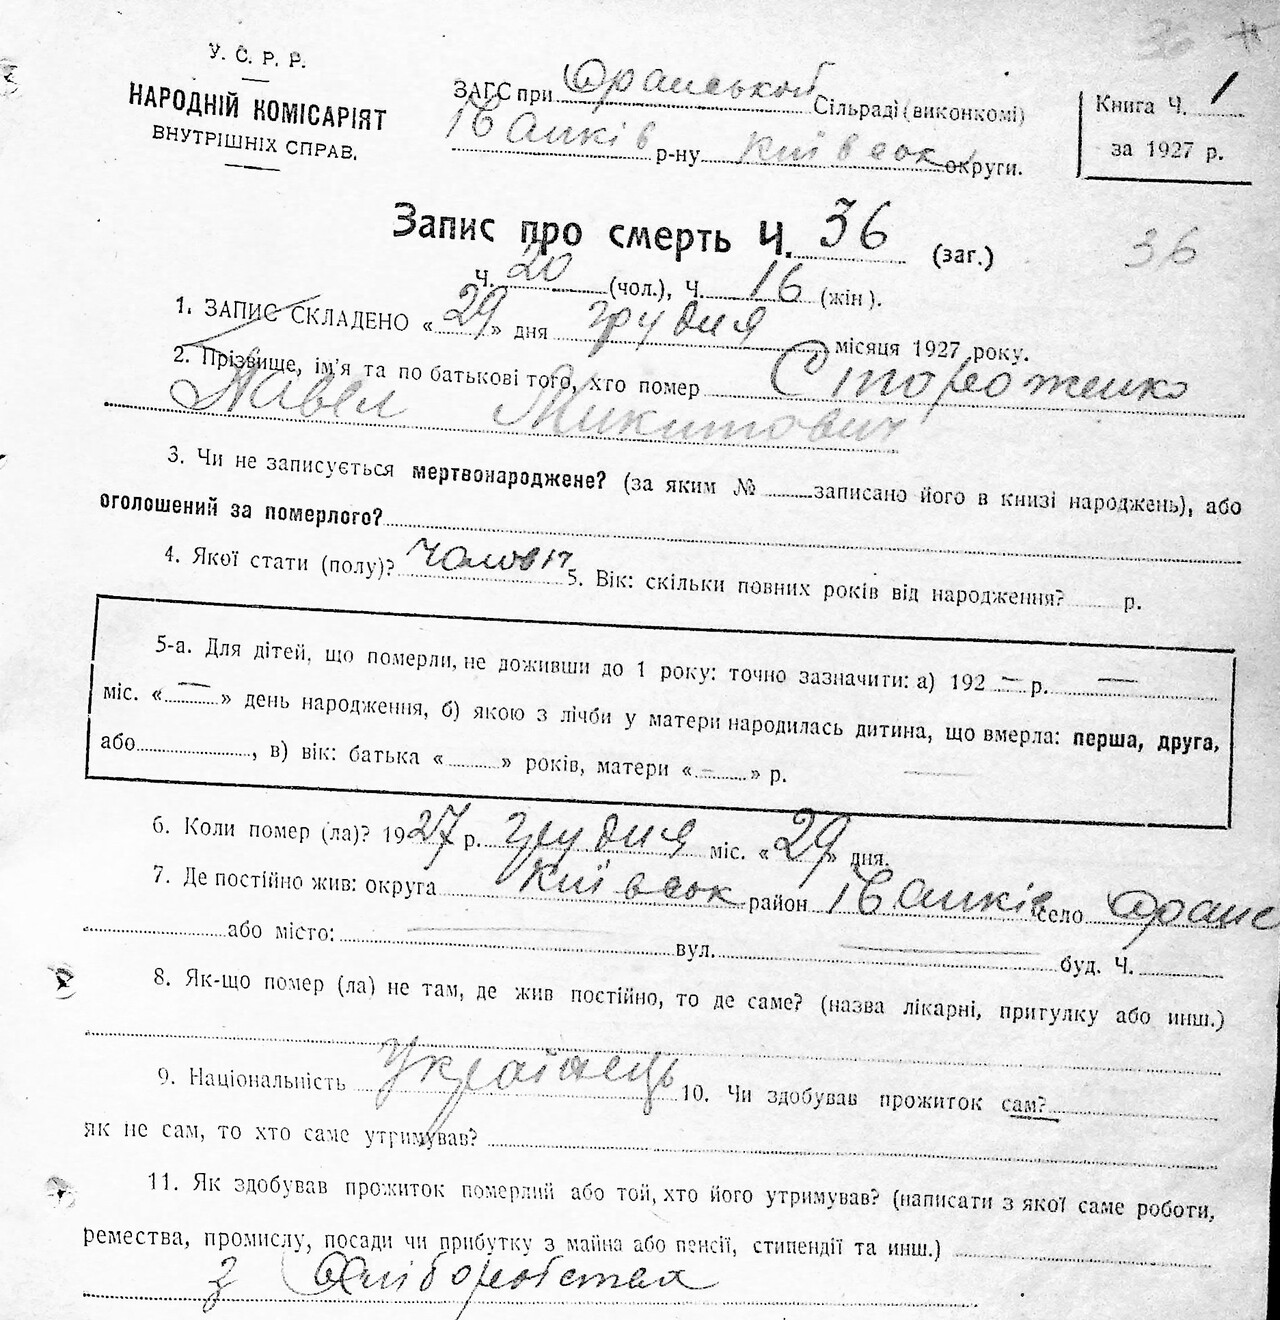 36
У. С. Р. Р.
НАРОДНІЙ КОМІСАРІЯТ
ВНУТРІШНІХ СПРАВ.
ЗАГС при Оранській Сільраді (виконкомі)
Іванків р-ну Київськ округи.
Книга Ч. 1
за 1927 р.
Запис про смерть Ч. 36 (заг.)
36
Ч. 20 (чол.), Ч. 16 (жін).
1. ЗАПИС СКЛАДЕНО « 29 » дня грудня місяця 1927 року.
2. Прізвище, ім'я та по батькові того, хто помер Стороженко
Павел Микитович
3. Чи не записується мертвонароджене? (за яким № записано його в книзі народжень), або
оголошений за померлого?
4. Якої стати (полу)? чолов 5. Вік: скільки повних років від народження? р.
5-а. Для дітей, що померли, не доживши до 1 року: точно зазначити: а) 192 — р. —
міс. « — » день народження, б) якою з лічби у матери народилась дитина, що вмерла: перша, друга,
або , в) вік: батька « » років, матери « — » р.
6. Коли помер (ла)? 1927 р. грудня міс. « 29 » дня.
7. Де постійно жив: округа Київськ район Іванків село Оране
або місто: вул. буд. Ч.
8. Як-що помер (ла) не там, де жив постійно, то де саме? (назва лікарні, пригулку або инш.)
9. Національність Українець 10. Чи здобував прожиток сам?
як не сам, то хто саме утримував?
11. Як здобував прожиток померлий або той, хто його утримував? (написати з якої саме роботи,
ремества, промислу, посади чи прибутку з майна або пенсії, стипендії та инш.)
з Хліборобства